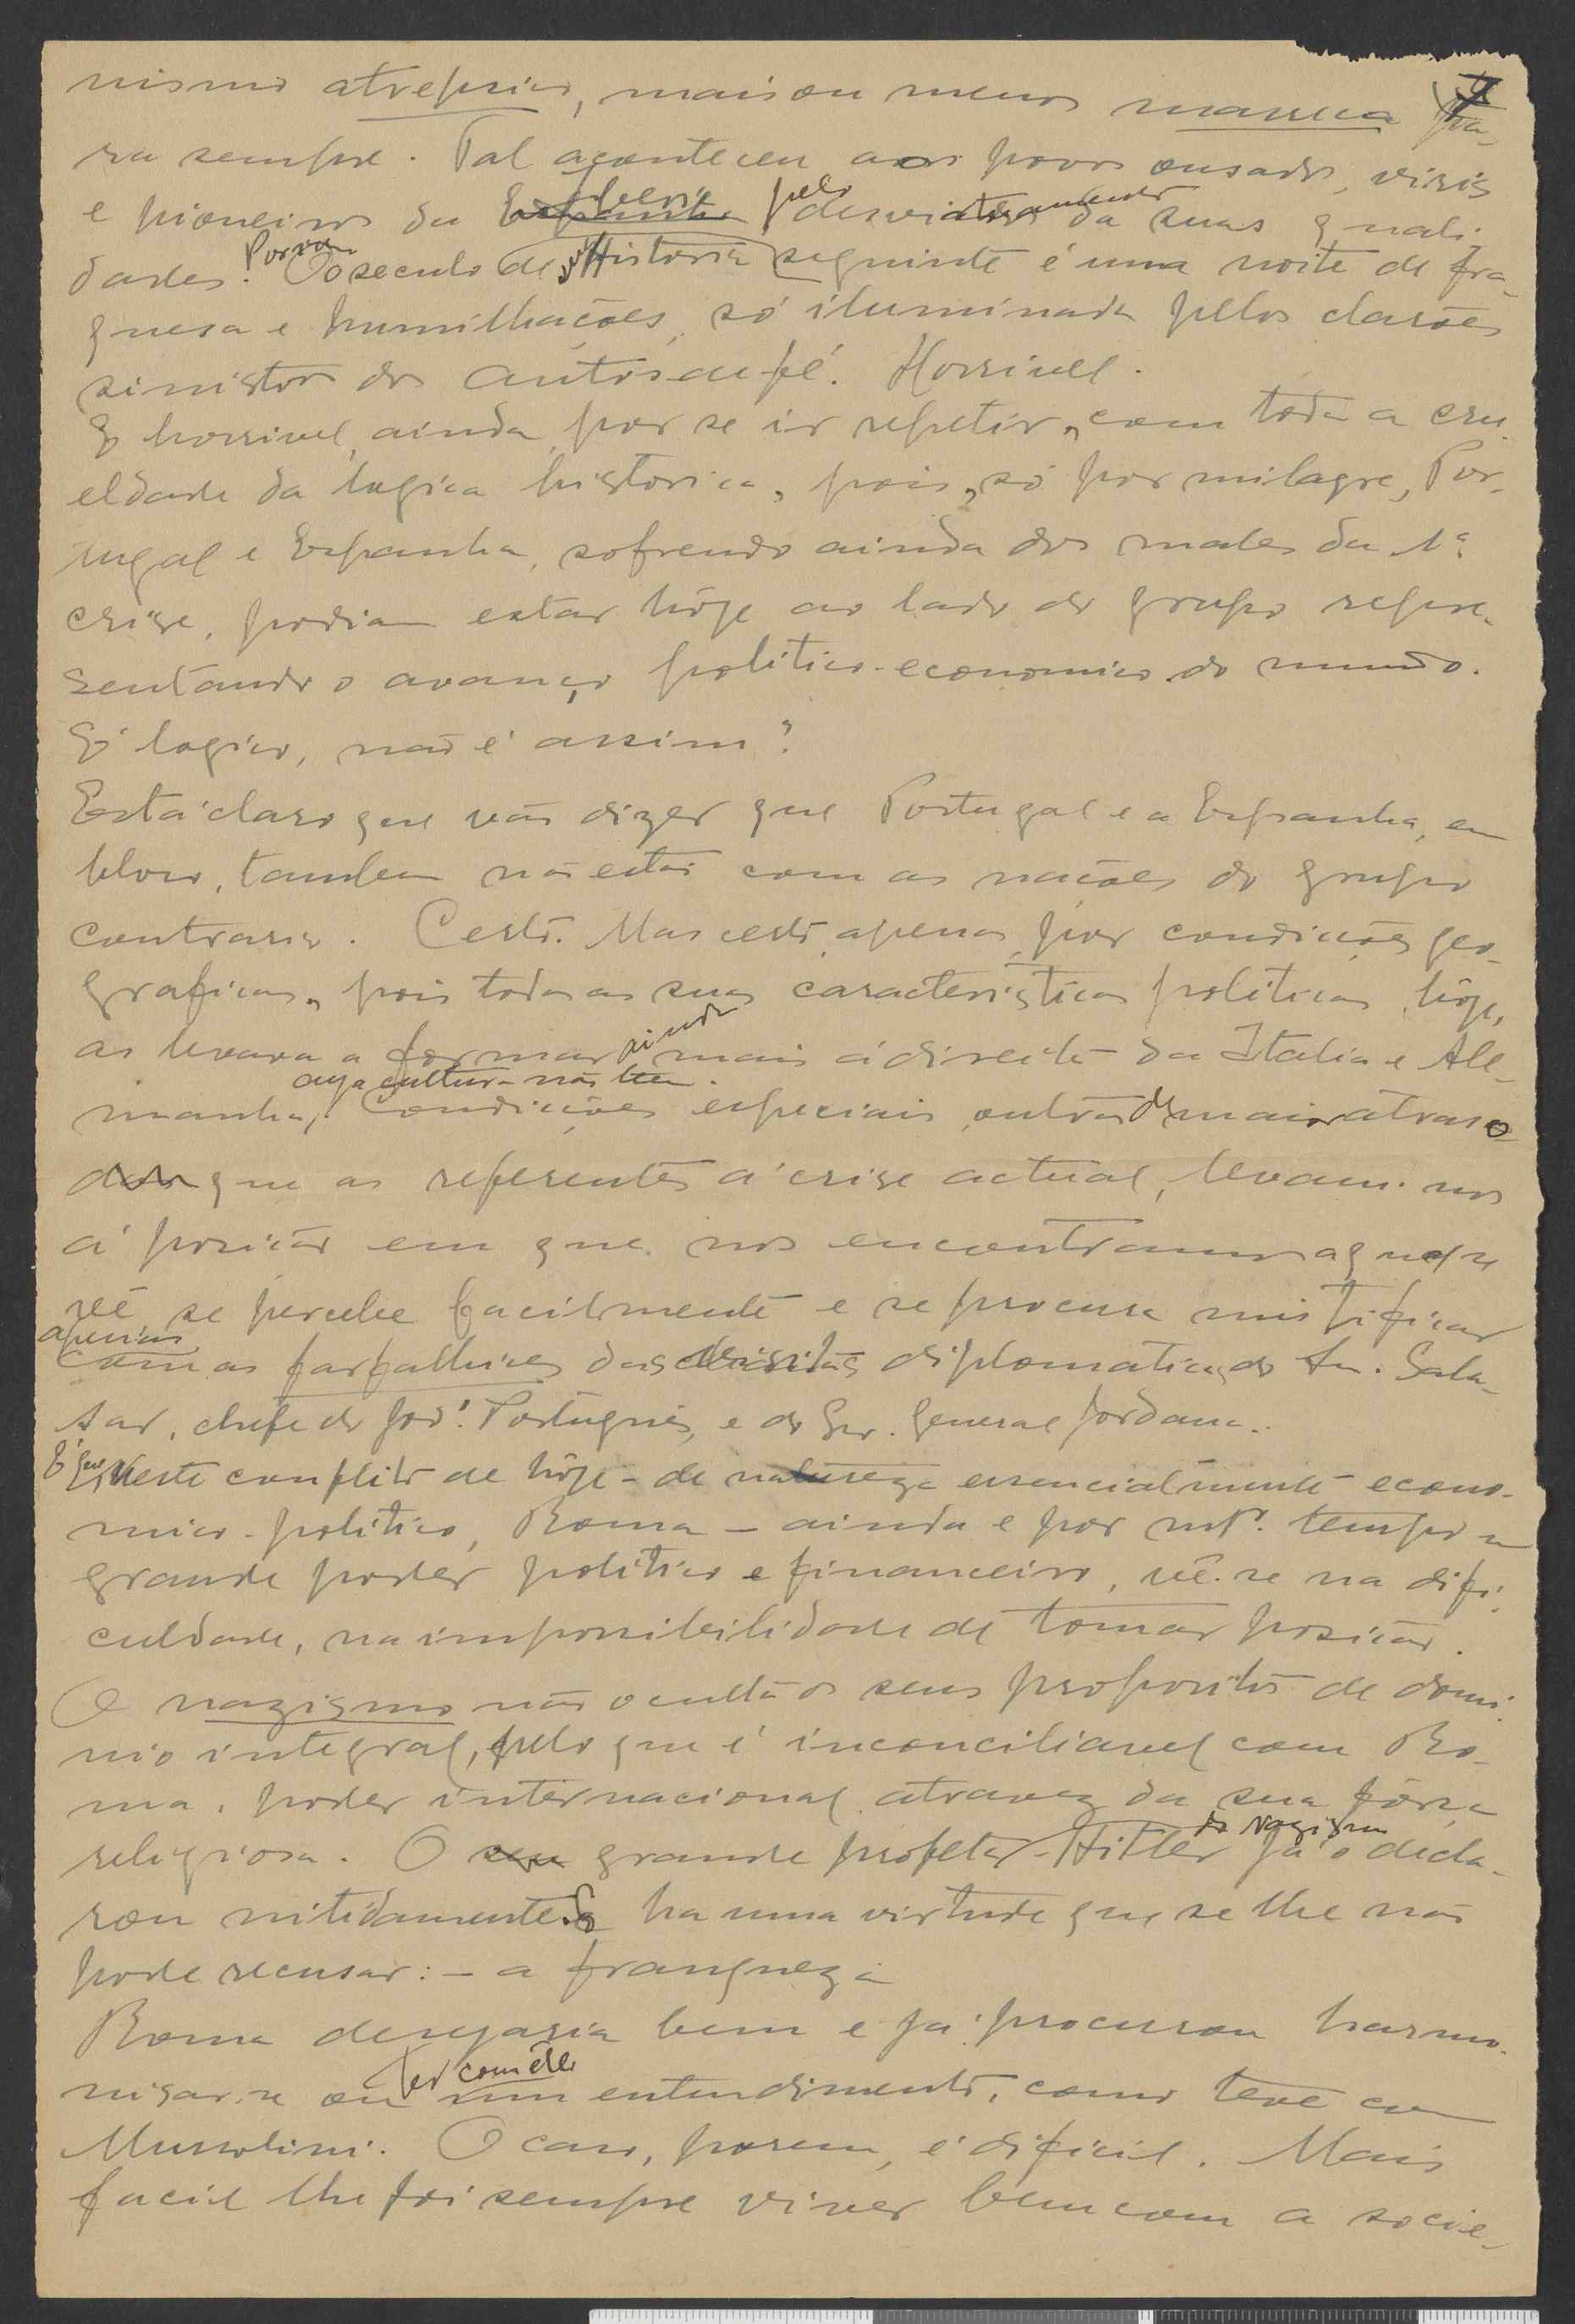 7
nismo atrofia, mais ou menos marca pa-
ra sempre. Tal aconteceu aos povos ousados, viris
e pioneiros da Iberia pelo desviamento da suas quali-
dades. Por um seculo de Historia seguinte é uma noite de fra-
quesa e humilhações, só iluminada pellos clarões
sinistros dos autos de fé. Horrivel.
E horrivel, ainda, por se ir repetir, com toda a cru
eldade da logica historica, pois, só por milagre, Por-
tugal e Espanha, sofrendo ainda dos males da 1ª
crise, podiam estar hôje ao lado do grupo repre-
sentando o avanço politico-economico do mundo.
É logico, não é assim?
Está claro que vão dizer que Portugal e a Espanha, em
bloco, tambem não estão com as nações do grupo
contrario. Certo. Mas certo, apenas, por condições geo-
graficas, pois todas as suas caracteristicas politicas, hôje,
as levava a formar ainda mais á direita da Italia e Ale-
manha, cuja cultura não tem. Condições especiais, outras de maior atraso
que as referentes á crise actual, levam-nos
á posição em que nos encontramos a que se
vê se percebe facilmente e se procura mistificar
apenas com as farfalhices das visitas diplomaticas do Sr. Sala-
zar, chefe do Govº. Português, e do Snr. General Jordana.
É que neste conflito de hôje - de natureza essencialmente econo-
mico-politico, Roma - ainda e por mtº. tempo um
grande poder politico e financeiro, vê-se na difi-
culdade, na impossibilidade de tomar posição.
O nazismo não oculta os seus propositos de domi-
nio integral, pelo que é inconciliavel com Ro-
ma, poder internacional atravez da sua fôrça
religiosa. O seu grande profeta do nazismo - Hitler já o decla-
rou nitidamente. E ha uma virtude que se lhe não
pode recusar: - a franqueza
Roma desejaria bem e já procurou harmo-
nisar-se ou ter com êle um entendimento, como teve com
Mussolini. O caso, porem, é dificil. Mais
facil lhe foi sempre viver bem com a socie-